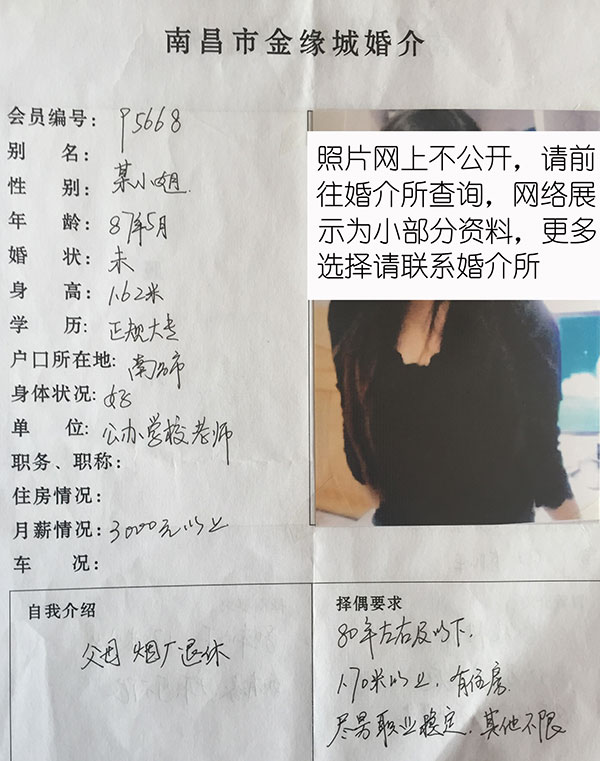 南昌市金缘城婚介
会员编号: P5668
别 名: 某小姐
性 别:
年 龄: 87年5月
婚 状: 未
身 高: 1.62米
学 历: 正规大专
户口所在地: 南昌市
身体状况: 好
单 位: 公办学校老师
职务、职称:
住房情况:
月薪情况: 3000元以上
车 况:
照片网上不公开，请前
往婚介所查询，网络展
示为小部分资料，更多
选择请联系婚介所
自我介绍
父母 烟厂退休
择偶要求
80年左右及以下.
1.70米以上. 有住房.
尽量职业稳定. 其他不限